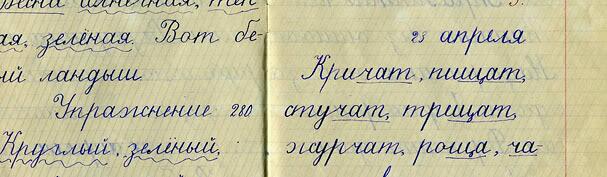 ая, зелёная. Вот бе-
ый ландыш.
Упражнение 280
Круглый, зелёный,
23 апреля
Кричат, пищат,
стучат, трещат,
журчат, роща, ча-